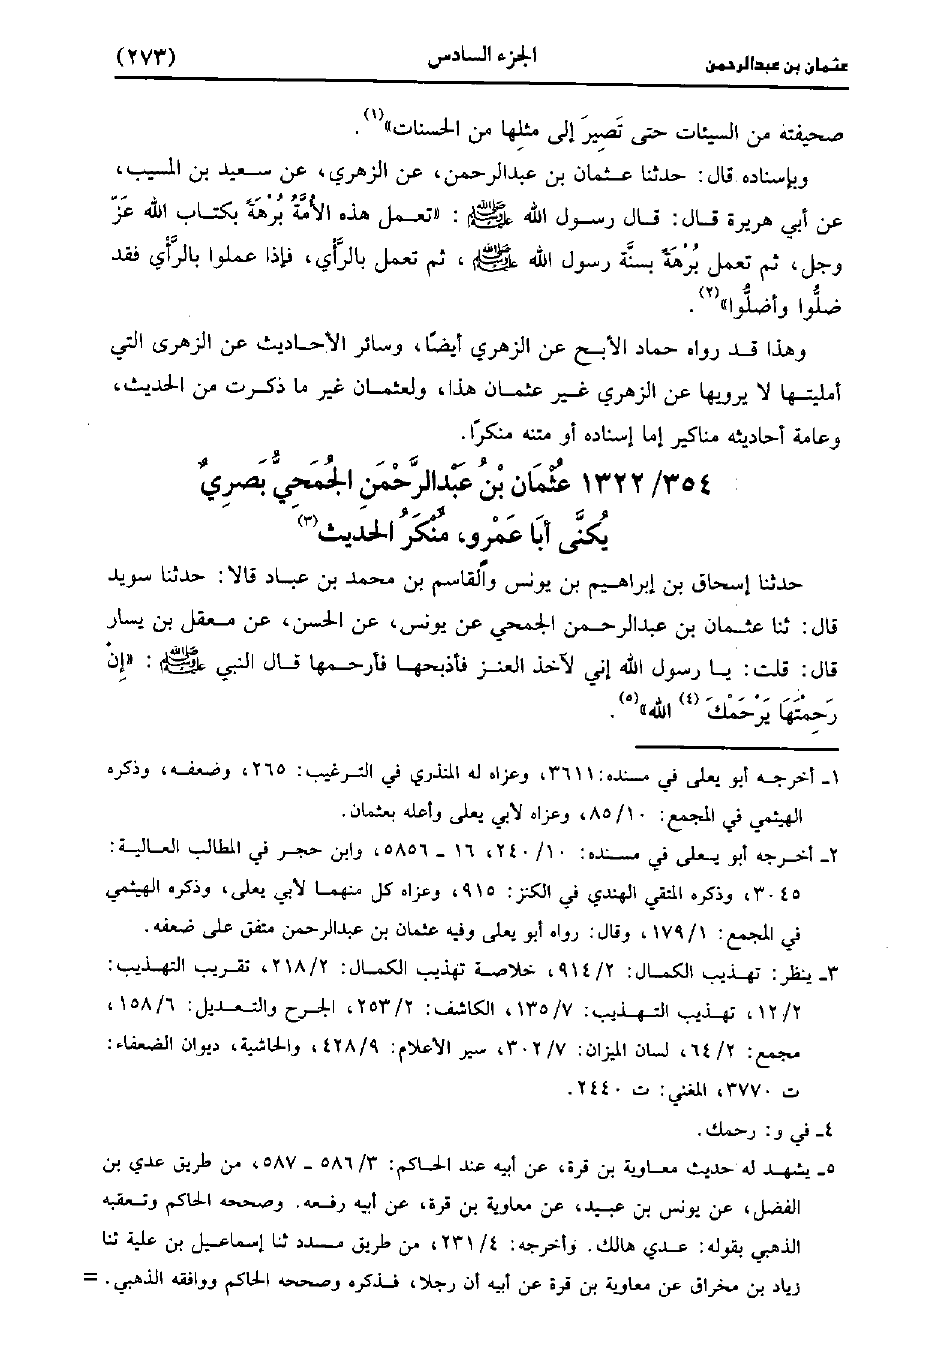 عثمان بن عبدالرحمن الجزء السادس (٢٧٣)
صحيفته من السيئات حتى تَصِيرَ إلى مثلِها من الحسنات»(١).
وبإسناده قال: حدثنا عثمان بن عبدالرحمن، عن الزهري، عن سعيد بن المسيب،
عن أبي هريرة قال: قال رسول الله ﷺ : «تعمل هذه الأُمَّةُ بُرْهَةً بكتاب الله عَزّ
وجل، ثم تعمل بُرْهَةً بسنَّة رسول الله ﷺ ، ثم تعمل بالرَّأي، فإذا عملوا بالرَّأي فقد
ضلُّوا وأضلُّوا»(٢).
وهذا قد رواه حماد الأبح عن الزهري أيضًا، وسائر الأحاديث عن الزهرى التي
أمليتها لا يرويها عن الزهري غير عثمان هذا، ولعثمان غير ما ذكرت من الحديث،
وعامة أحاديثه مناكير إما إسناده أو متنه منكرًا.
١٣٢٢/٣٥٤ عُثْمَان بْنُ عَبْدالرَّحْمَنِ الجُمَحِيُّ بَصَرِيٌّ
يُكَنَّى أَبَا عَمْرو، مُنْكَرُ الحَديث(٣)
حدثنا إسحاق بن إبراهيم بن يونس والقاسم بن محمد بن عباد قالا: حدثنا سويد
قال: ثنا عثمان بن عبدالرحمن الجمحي عن يونس، عن الحسن، عن معقل بن يسار
قال: قلت: يا رسول الله إني لآخذ العنز فأذبحها فأرحمها قال النبي ﷺ : «إِنْ
رَحِمْتَهَا يَرْحَمْكَ (٤) الله»(٥).
١ـ أخرجه أبو يعلى في مسنده: ٣٦١١، وعزاه له المنذري في الترغيب: ٢٦٥، وضعفه، وذكره
الهيثمي في المجمع: ٨٥/١٠، وعزاه لأبي يعلى وأعله بعثمان.
٢ـ أخرجه أبو يعلى في مسنده: ٢٤٠/١٠، ١٦ ـ ٥٨٥٦، وابن حجر في المطالب العالية:
٣٠٤٥، وذكره المتقي الهندي في الكنز: ٩١٥، وعزاه كل منهما لأبي يعلى، وذكره الهيثمي
في المجمع: ١٧٩/١، وقال: رواه أبو يعلى وفيه عثمان بن عبدالرحمن متفق على ضعفه.
٣ـ ينظر: تهذيب الكمال: ٩١٤/٢، خلاصة تهذيب الكمال: ٢١٨/٢، تقريب التهذيب:
١٢/٢، تهذيب التهذيب: ١٣٥/٧، الكاشف: ٢٥٣/٢، الجرح والتعديل: ١٥٨/٦،
مجمع: ٦٤/٢، لسان الميزان: ٣٠٢/٧، سير الأعلام: ٤٢٨/٩، والحاشية، ديوان الضعفاء:
ت ٣٧٧٠، المغني: ت ٢٤٤٠.
٤ـ في و: رحمك.
٥ـ يشهد له حديث معاوية بن قرة، عن أبيه عند الحاكم: ٥٨٦/٣ ـ ٥٨٧، من طريق عدي بن
الفضل، عن يونس بن عبيد، عن معاوية بن قرة، عن أبيه رفعه. وصححه الحاكم وتعقبه
الذهبي بقوله: عدي هالك. وأخرجه: ٢٣١/٤، من طريق مسدد ثنا إسماعيل بن علية ثنا
زياد بن مخراق عن معاوية بن قرة عن أبيه أن رجلا، فذكره وصححه الحاكم ووافقه الذهبي. =